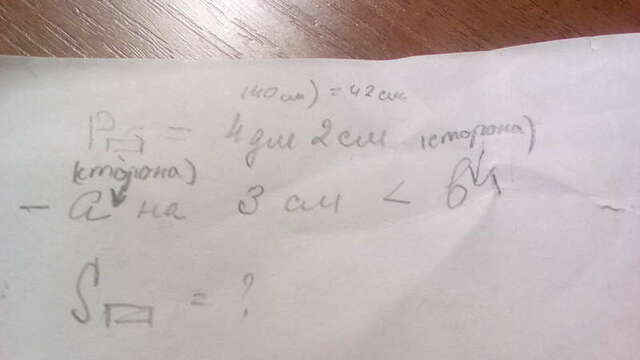 (40 см) = 42 см
P▭ = 4 дм 2 см (сторона)
(сторона)
- а на 3 см < в
S▭ = ?